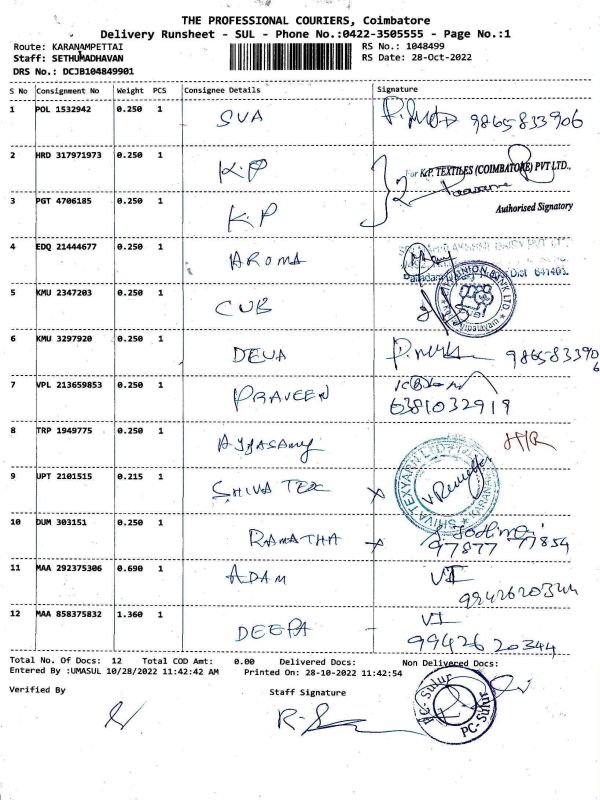 THE PROFESSIONAL COURIERS, Coimbatore
Delivery Runsheet - SUL - Phone No.:0422-3505555 - Page No.:1
Route: KARANAMPETTAI RS No.: 1048499
Staff: SETHUMADHAVAN RS Date: 28-Oct-2022
DRS No.: DCJB104849901
S No Consignment No Weight PCS Consignee Details Signature
1 POL 1532942 0.250 1 SVA 9865833906
2 HRD 317971973 0.250 1 K.P For K.P. TEXTILES (COIMBATORE) PVT LTD.,
3 PGT 4706185 0.250 1 K.P Authorised Signatory
4 EDQ 21444677 0.250 1 AROMA
5 KMU 2347203 0.250 1 CUB UNION BANK LTD
6 KMU 3297920 0.250 1 DEVA 9865833906
7 VPL 213659853 0.250 1 PRAVEEN 6381032919
8 TRP 1949775 0.250 1 AYYASAMY
9 UPT 2101515 0.215 1 SHIVA TEX SHIVA TEXYARN LTD
10 DUM 303151 0.250 1 RAMATHA 97877 77854
11 MAA 292375306 0.690 1 ADAM 9942620344
12 MAA 858375832 1.360 1 DEEPA 99426 20344
Total No. Of Docs: 12 Total COD Amt: 0.00 Delivered Docs: Non Delivered Docs:
Entered By :UMASUL 10/28/2022 11:42:42 AM Printed On: 28-10-2022 11:42:54
Verified By Staff Signature
PC-Sulur
PC-Sulur